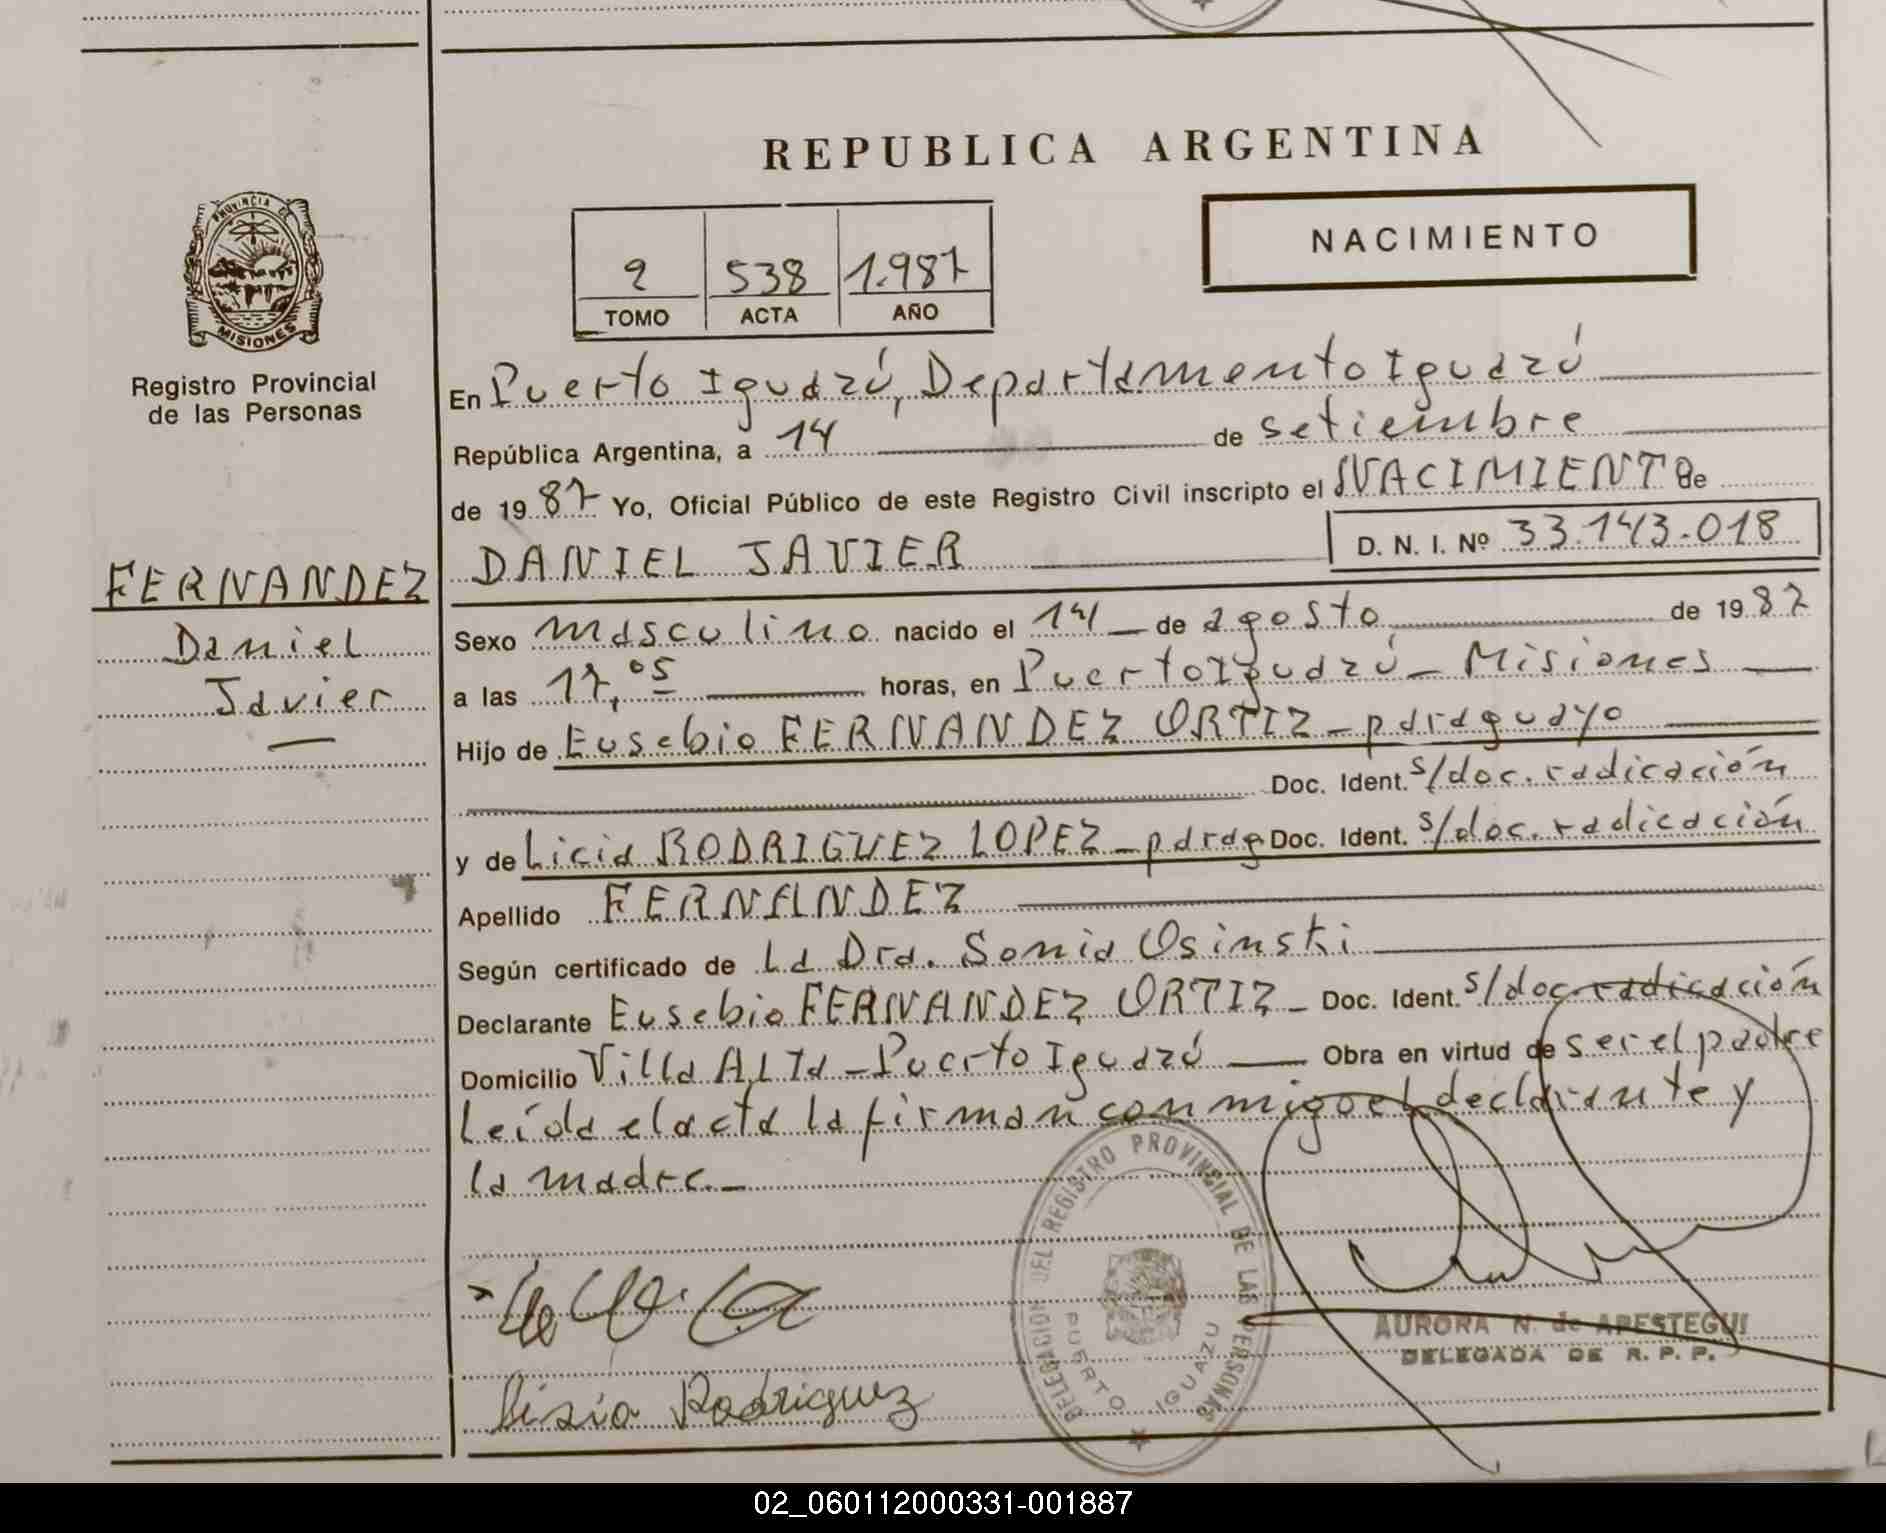 PROVINCIA DE
MISIONES
Registro Provincial
de las Personas
FERNANDEZ
Daniel
Javier
REPUBLICA ARGENTINA
NACIMIENTO
2 538 1.987
TOMO ACTA AÑO
En Puerto Iguazú, Departamento Iguazú
República Argentina, a 14 de setiembre
de 1987 Yo, Oficial Público de este Registro Civil inscripto el NACIMIENTO de
DANIEL JAVIER D. N. I. Nº 33.143.018
Sexo masculino nacido el 14 de agosto de 1987
a las 17,05 horas, en Puerto Iguazú - Misiones
Hijo de Eusebio FERNANDEZ ORTIZ - paraguayo
Doc. Ident. s/doc. radicación
y de Licia RODRIGUEZ LOPEZ - parag Doc. Ident. s/doc. radicación
Apellido FERNANDEZ
Según certificado de La Dra. Sonia Osinski
Declarante Eusebio FERNANDEZ ORTIZ - Doc. Ident. s/doc radicación
Domicilio Villa Alta - Puerto Iguazú Obra en virtud de ser el padre
Leída el acta la firman conmigo el declarante y
la madre. -
DELEGACION DEL REGISTRO PROVINCIAL DE LAS PERSONAS
PUERTO IGUAZU
AURORA N. de APESTEGUI
DELEGADA DE R. P. P.
Lisia Rodriguez
02_060112000331-001887